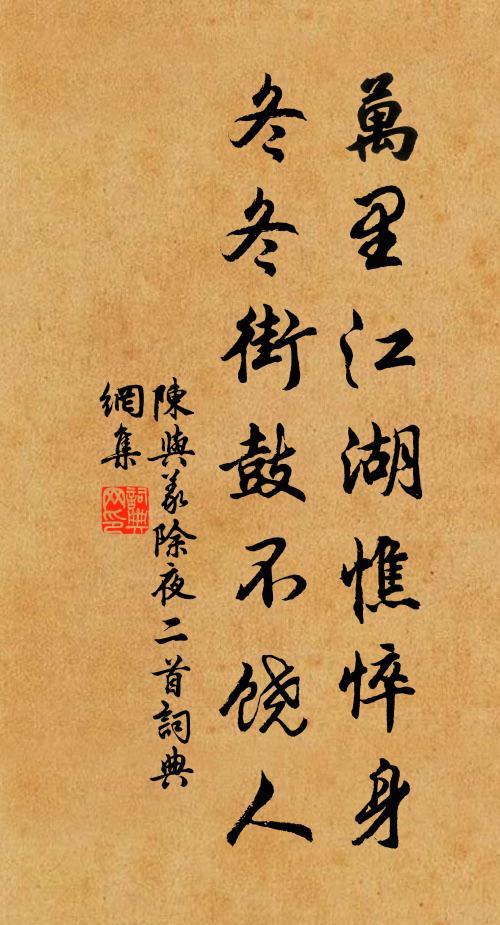 萬里江湖憔悴身
冬冬街鼓不饶人
陳與義除夜二首詞典
網集
詞典
网印